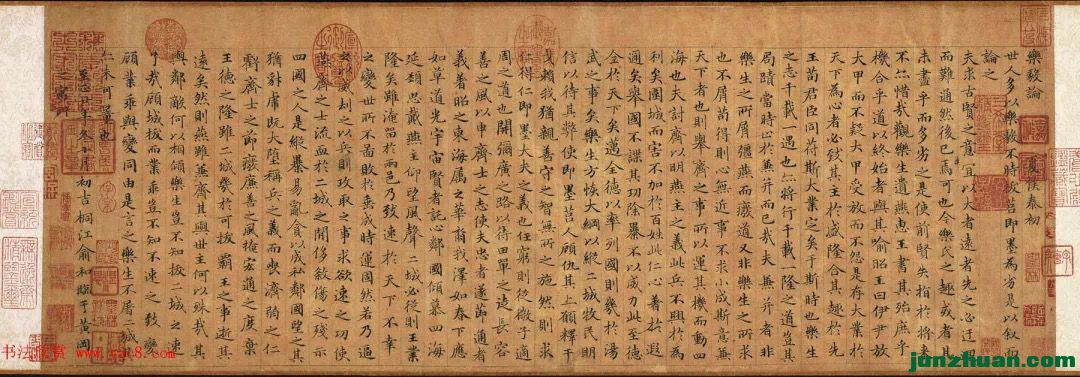 樂毅論 夏侯泰初
世人多以樂毅不時拔莒即墨為劣是以叙而
論之
夫求古賢之意宜以大者遠者先之必迂迴
而難通然後已焉可也今樂氏之趣或者其
未盡乎而多劣之是使前賢失指於將來
不亦惜哉觀樂生遺燕惠王書其殆庶乎
機合乎道以終始者與其喻昭王曰伊尹放
大甲而不疑大甲受放而不怨是存大業於
天下為心者必致其主於盛隆合其趣於先
王苟君臣同符斯大業定矣于斯時也樂生
之志千載一遇也亦將行千載一隆之道豈其
局蹟當時止於兼并而已哉夫兼并者非
樂生之所屑彊燕而廢道又非樂生之所求
也不屑苟得則心無近事不求小成斯意兼
天下者也則舉齊之事所以運其機而動四
海也夫討齊以明燕主之義此兵不興於為
利矣圍城而害不加於百姓此仁心著於遐
邇矣舉國不謀其功除暴不以威力此至德
全於天下矣邁全德以率列國則幾於湯
武之事矣樂生方恢大綱以縱二城牧民明
信以待其弊使即墨莒人顧仇其上願釋干
戈賴我猶親善守之智無所之施然則求
仁得仁即墨大夫之義也任窮則從微子適
周之道也開彌廣之路以待田單之徒長容
善之風以申齊士之志使夫忠者遂節通者
義著昭之東海屬之華裔我澤如春下應
如草道光宇宙賢者託心鄰國傾慕四海
延頸思戴燕主仰望風聲二城必從則王業
隆矣雖淹留於兩邑乃致速於天下不幸
之變世所不圖敗於垂成時運固然若乃逼
之以威劫之以兵則攻取之事求欲速之功使
燕齊之士流血於二城之間侈殺傷之殘示
四國之人是縱暴易亂貪以成私鄰國望之其
猶豺虎既大墮稱兵之義而喪濟弱之仁
虧齊士之節廢廉善之風掩宏通之度棄
王德之隆雖二城幾於可拔霸王之事逝其
遠矣然則燕雖兼齊其與世主何以殊哉其
與鄰敵何以相傾樂生豈不知拔二城之速
了哉顧城拔而業乖豈不知不速之致變
顧業乖與變同由是言之樂生不屠二城
未可量也
冬十月初吉桐江俞和臨于黃岡
之寓所
书法欣赏
junzhuan.com